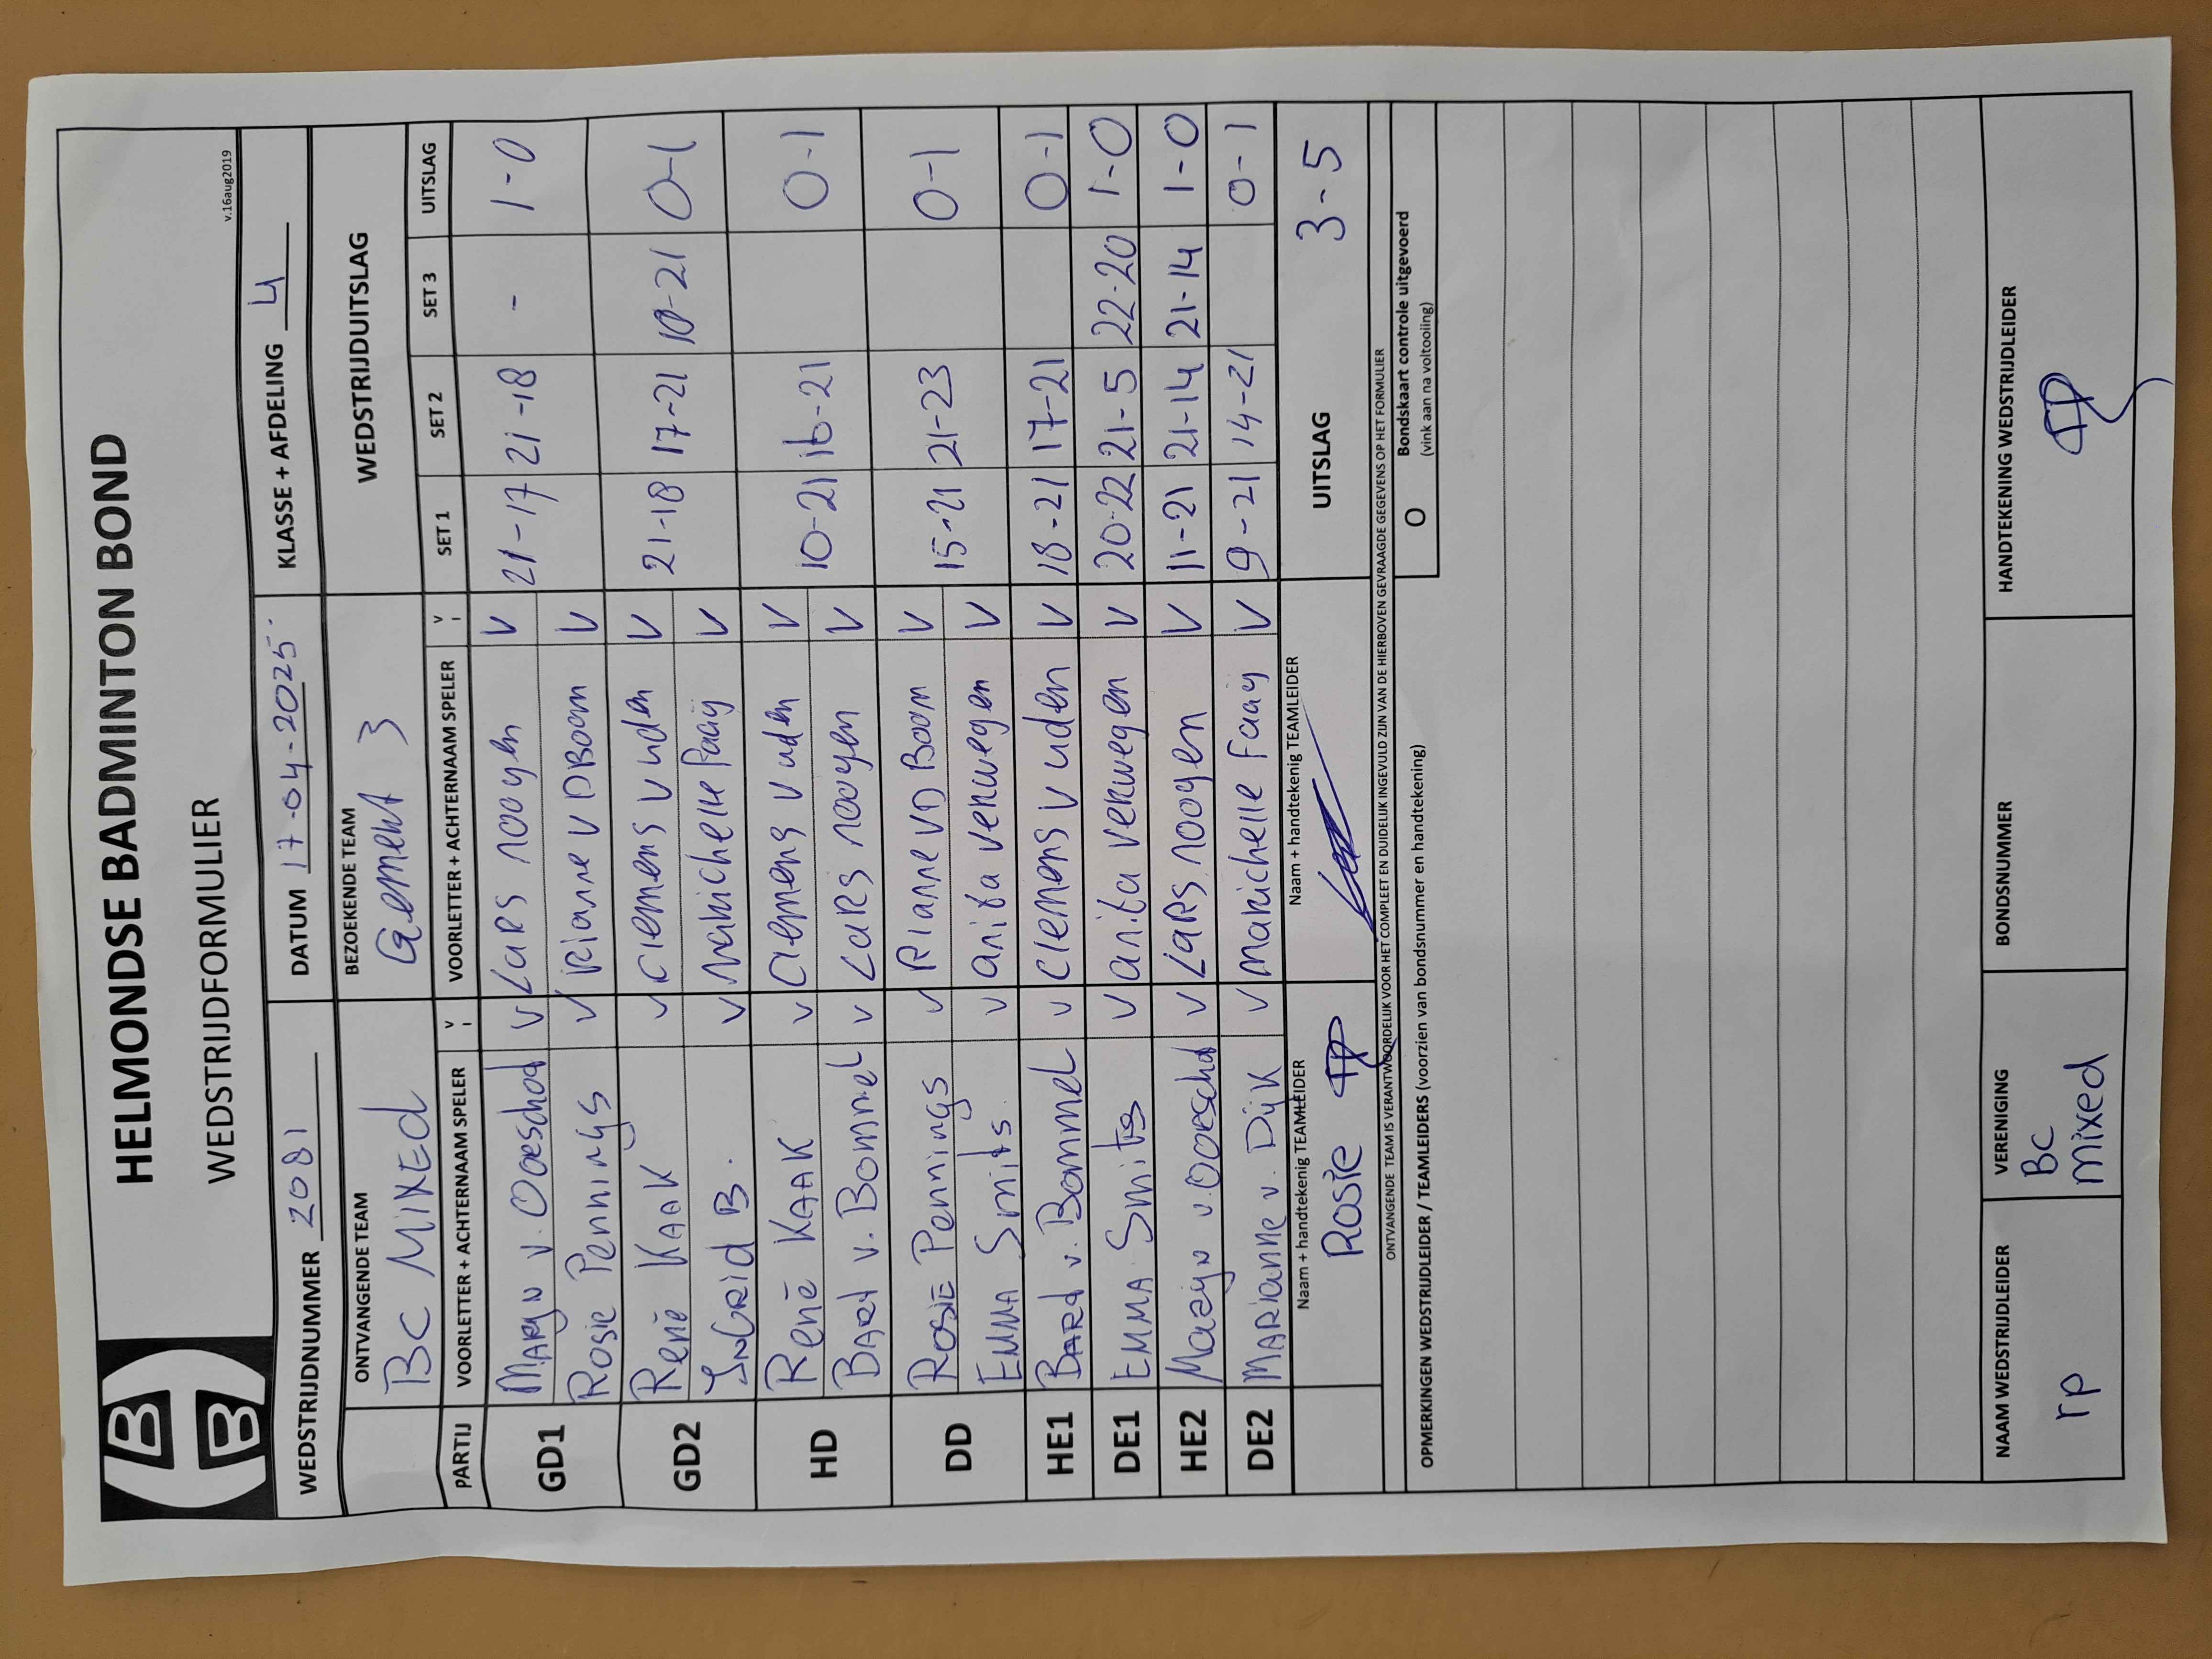 HELMONDSE BADMINTON BOND
WEDSTRIJDFORMULIER
v.16aug2019
WEDSTRIJDNUMMER 2081 DATUM 17-04-2025 KLASSE + AFDELING 4
ONTVANGENDE TEAM BEZOEKENDE TEAM WEDSTRIJDUITSLAG
BC MIXED Gemert 3
PARTIJ VOORLETTER + ACHTERNAAM SPELER V VOORLETTER + ACHTERNAAM SPELER V SET 1 SET 2 SET 3 UITSLAG
GD1 MARYN v. Ooeschot V LARS nooyen V 21-17 21-18 - 1-0
Rosie Pennings V Rianne v D Boom V
GD2 René KAAK V Clemens v uden V 21-18 17-21 10-21 0-1
INGRID B. V Makichelle Faaij V
HD René KAAK V Clemens v uden V 10-21 16-21 0-1
BART v. Bommel V LARS nooyen V
DD ROSIE Pennings V Rianne v D Boom V 15-21 21-23 0-1
EMMA Smits V anita verwegen V
HE1 BART v. Bommel V Clemens v uden V 18-21 17-21 0-1
DE1 EMMA Smits V anita verwegen V 20-22 21-5 22-20 1-0
HE2 Maryn v. Ooeschot V LARS nooyen V 11-21 21-14 21-14 1-0
DE2 MARianne v. Dijk V makichelle Faaij V 9-21 14-21 0-1
Naam + handtekenig TEAMLEIDER Naam + handtekenig TEAMLEIDER UITSLAG 3-5
Rosie RP
ONTVANGENDE TEAM IS VERANTWOORDELIJK VOOR HET COMPLEET EN DUIDELIJK INGEVULD ZIJN VAN DE HIERBOVEN GEVRAAGDE GEGEVENS OP HET FORMULIER
OPMERKINGEN WEDSTRIJDLEIDER / TEAMLEIDERS (voorzien van bondsnummer en handtekening)
O Bondskaart controle uitgevoerd
(vink aan na voltooling)
NAAM WEDSTRIJDLEIDER VERENIGING BONDSNUMMER HANDTEKENING WEDSTRIJDLEIDER
rp BC RP
mixed